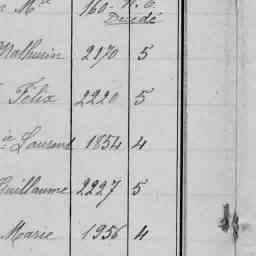 Mie 160 N. C.
Décédé
Mathurin 2170 5
Félix 2220 5
ie Laurent 1854 4
Guillaume 2227 5
Marie 1956 4